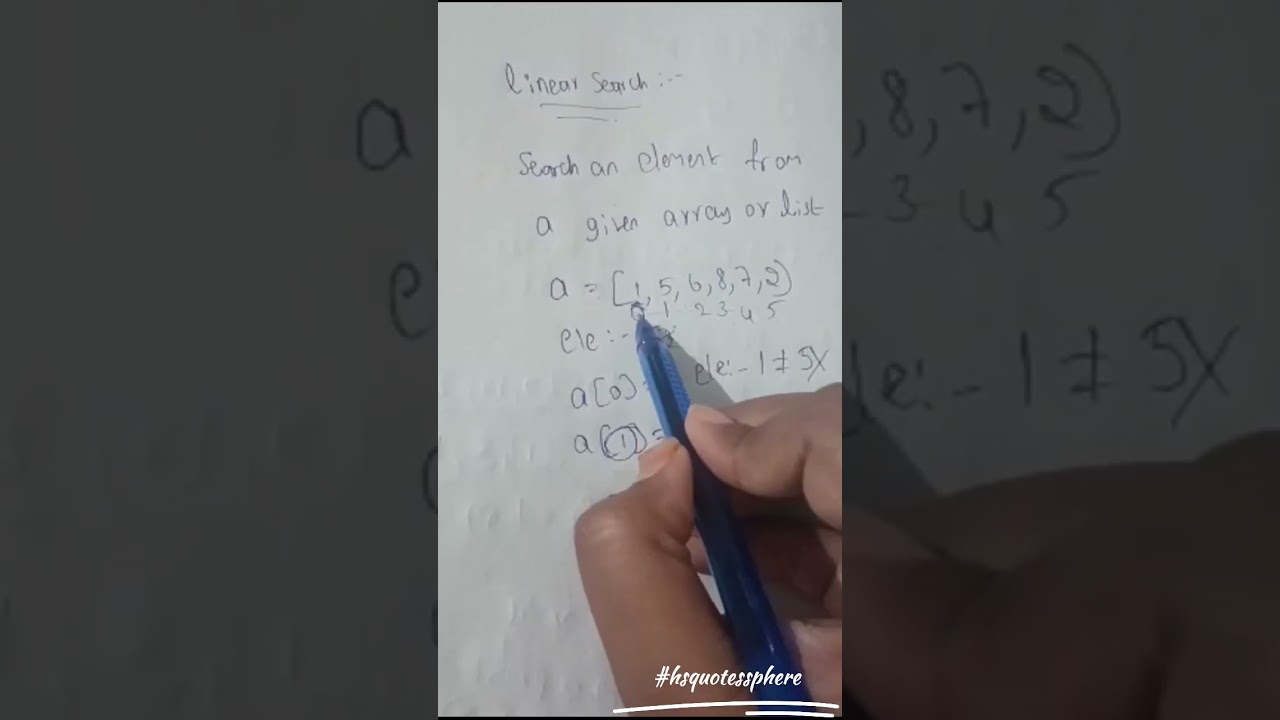 Linear Search :--
Search an element from
a given array or list
a = [1, 5, 6, 8, 7, 2)
0 1 2 3 4 5
ele :-
a[0] = ele:- 1 ≠ 5X
a[1] =
#hsquotessphere